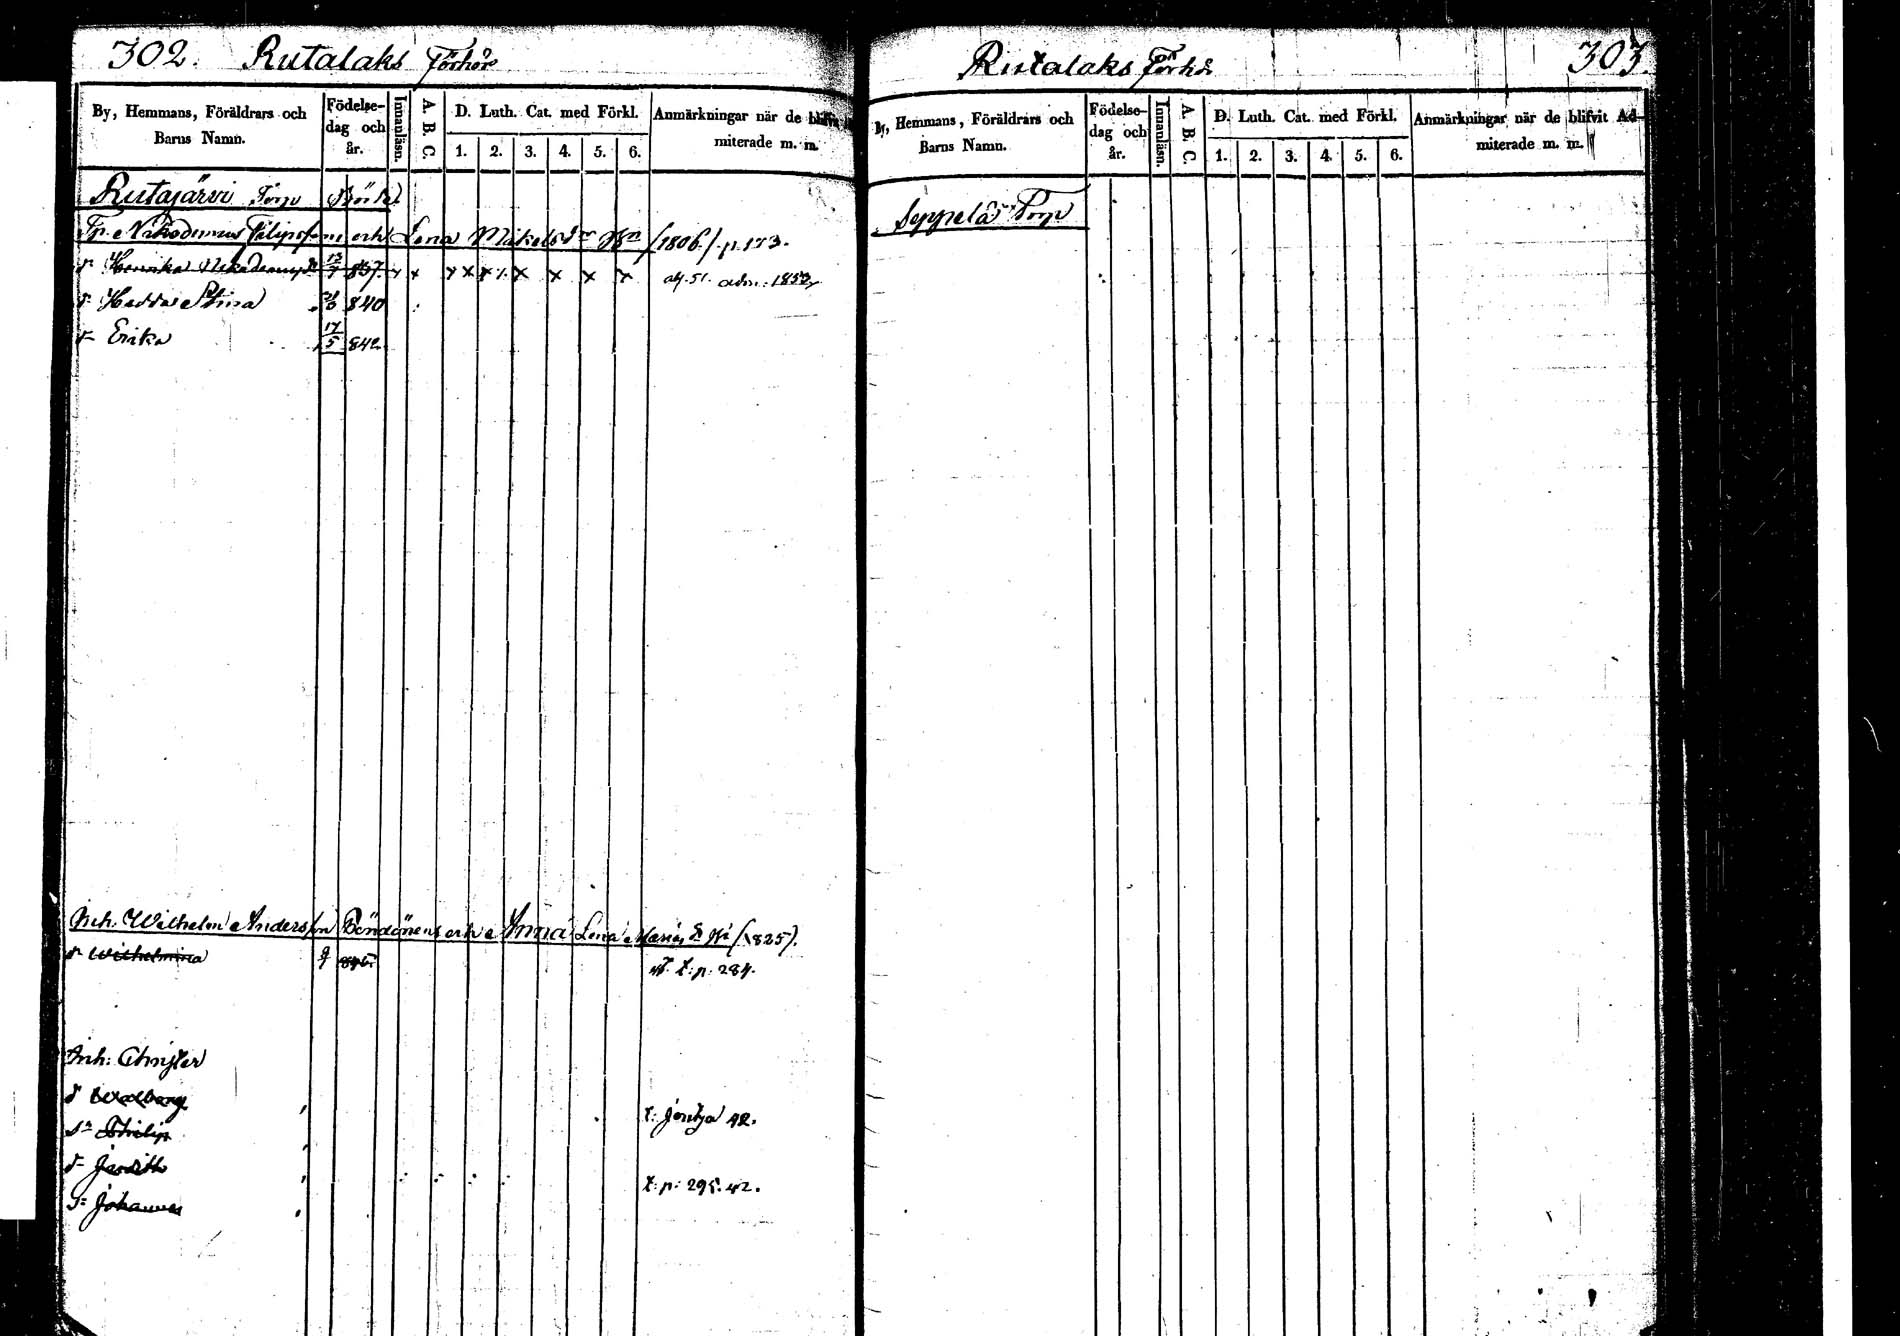 302. Rutalaks Förhör
By, Hemmans, Föräldrars och Barns Namn.
Födelse-dag och år.
Innanläsn.
A. B. C.
D. Luth. Cat. med Förkl.
1. 2. 3. 4. 5. 6.
Anmärkningar när de blifvit
miterade m. m.
Rutajärvi Torp
Tp. Nikodemus Filipsson och Lena Mikelsdr Hn (1806) p. 173.
dr Henrika Nikodemusdr 13/7 837. x x x x x x x x x x afg. 51. adm. 1853
dr Hedda Stina 840
dr Erika 17/5 842
Inh. Wilhelm Andersson Pöndinen och Anna Lena Mariasdr Hä (1825).
dr Wilhelmina 9 845. t. p. 284.
Inh: Christer
dr Walborg t: Joutsa 42.
Sn Philip
dr Judith t: p: 295. 42.
S: Johannes
Rutalaks Förhör 303.
By, Hemmans, Föräldrars och Barns Namn.
Födelse-dag och år.
Innanläsn.
A. B. C.
D. Luth. Cat. med Förkl.
1. 2. 3. 4. 5. 6.
Anmärkningar när de blifvit Ad-
miterade m. m.
Seppelä Torp